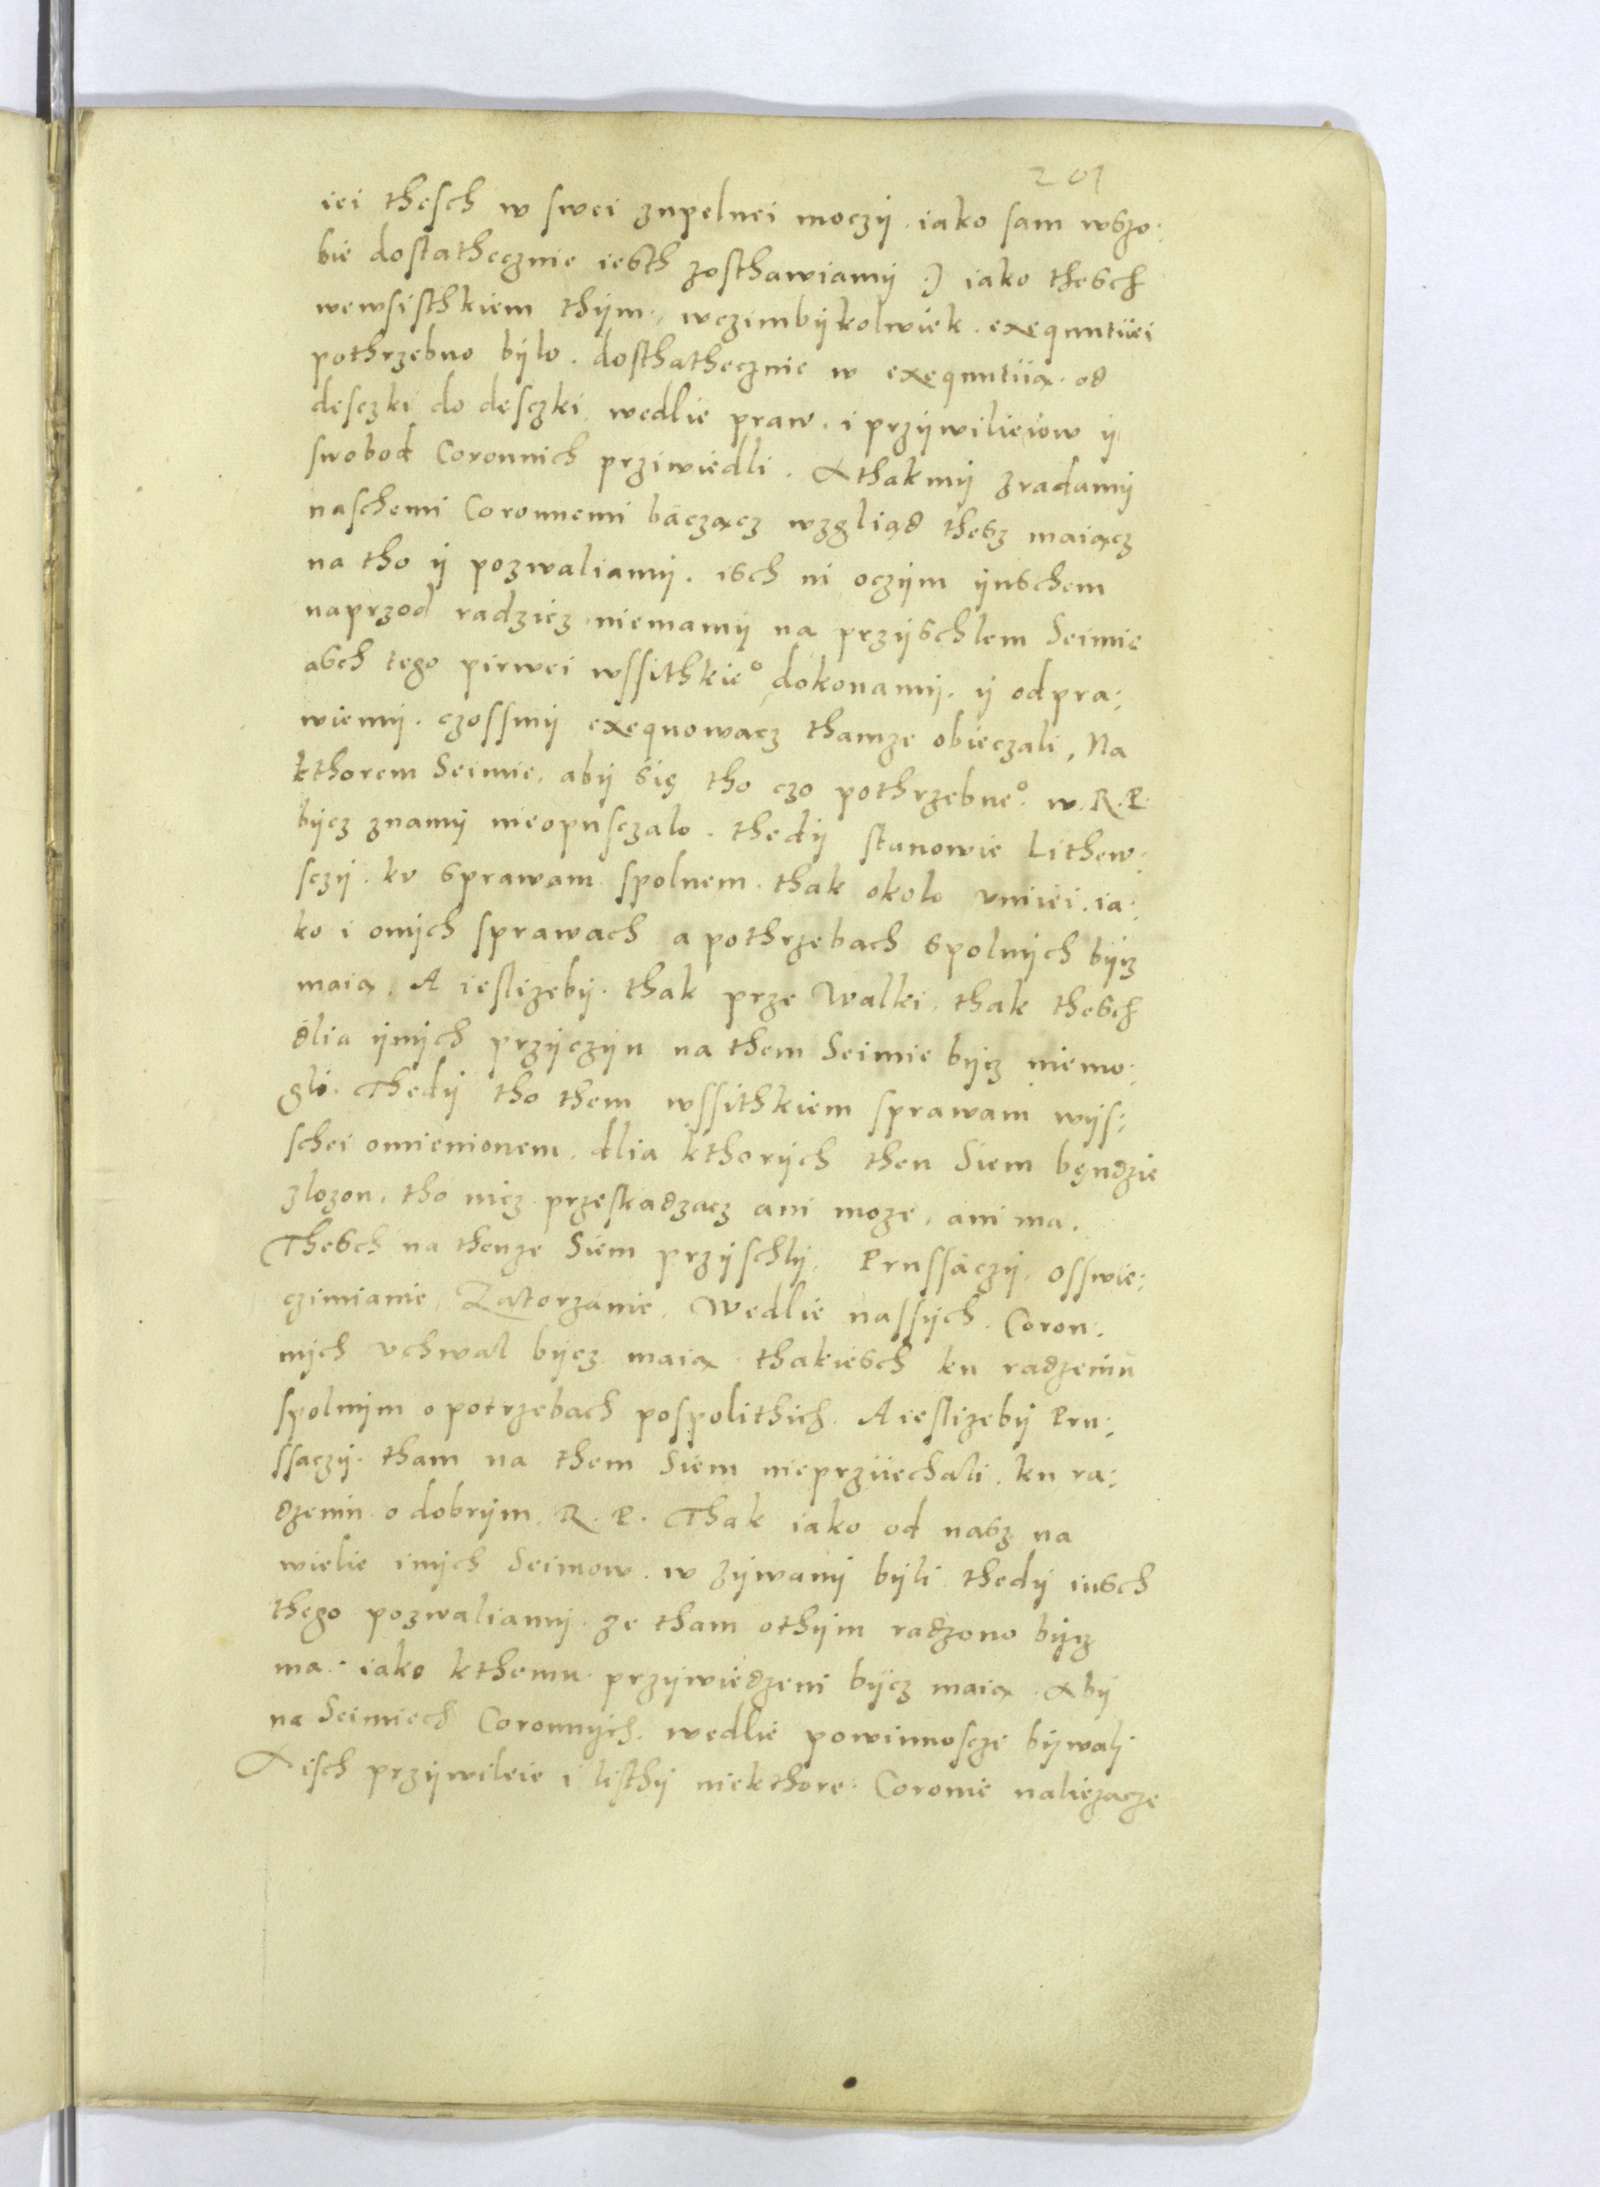 201
iei thesch w swei zupelnei moczÿ . iako sam wszo:
bie dostathecznie iesth zosthawiamÿ :) iako thesch
wewsisthkiem thÿm, wczimbÿkolwiek . exequutiiei
pothrzebno bÿlo . dosthathecznie w exequutiią . od
desczki do desczki wedlie praw . i przÿwilieiow ÿ
swobod Coronnich prziwiedli . Athakmÿ zradamÿ
naschemi Coronnemi bacząncz wzgliąd thesz maiącz
na tho ÿ pozwaliamÿ . isch ni oczÿm ÿnschem
naprzod radzicz niemamÿ na przÿschlem Seimie
asch tego pirwei wssithkie° dokonamÿ . ÿ odpra:
wiemÿ . czossmÿ exequowacz thamze obieczali . Na
kthorem Seimie . abÿ się tho czo pothrzebne° . w . R . P.
bÿcz znamÿ nieopusczalo . thedÿ stanowie Lithew:
sczÿ . kv sprawam spolnem . thak okolo vniiei . ia:
ko i onÿch sprawach a pothrzebach spolnÿch bÿcz
maią . A iestizebÿ . thak prze Walki . thak thesch
dlia ÿnÿch przÿczÿn na them Seimie bÿcz niemo:
gli . Thedÿ tho them wssithkiem sprawam wÿs:
schei omienionem . dlia kthorÿch then Siem bęndzie
zlozon . tho nicz przeskadzacz ani moze . ani ma .
Thesch na thenze Siem przÿschlÿ . Prussaczÿ . Osswie:
czimianie . Zatorzanie . Wedlie nassÿch . Coron:
nÿch vchwal bÿcz maią thakiesch ku radzeniu
spolnÿm o potrzebach pospolithich . A iestizebÿ Pru:
ssaczÿ . tham na them Siem nieprziiechali . ku ra:
dzeniu o dobrÿm . R . P . Thak iako od nasz na
wielie inÿch Seimow . w zÿwanÿ bÿli thedÿ iusch
thego pozwaliamÿ . ze tham othÿm radzono bÿcz
ma . iako kthemu przÿwiedzeni bÿcz maią . Abÿ
na Seimiech Coronnÿch . wedlie powinnoscze bÿwali
A isch przÿwileie i listhÿ niekthore . Coronie naliezacze